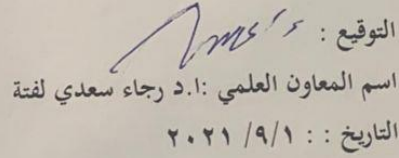 التوقيع :
اسم المعاون العلمي :ا.د رجاء سعدي لفتة
التاريخ : : ٢٠٢١ /٩/١